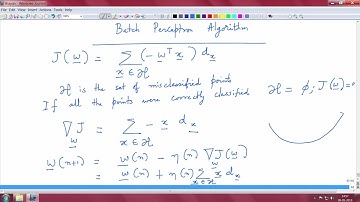 Batch Perceptron Algorithm
J(w) = ∑ x ∈ ℋ (-wᵀ x) d_x
ℋ is the set of misclassified points
If all the points were correctly classified ℋ = ϕ ; J(w) =
∇J_w = ∑ x ∈ ℋ - x d_x
w(n+1) = w(n) - η(n) ∇J(w)
= w(n) + η(n) ∑ x ∈ ℋ x d_x